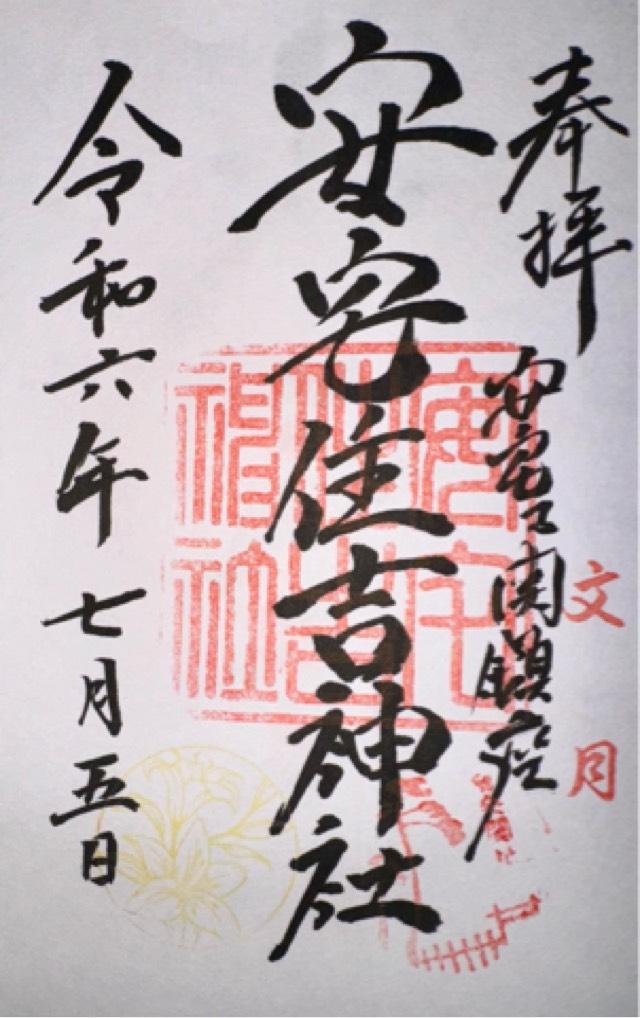 奉拝
安宅乃関鎮座
文月
安宅住吉神社
安宅
住吉
神社
令和六年七月五日